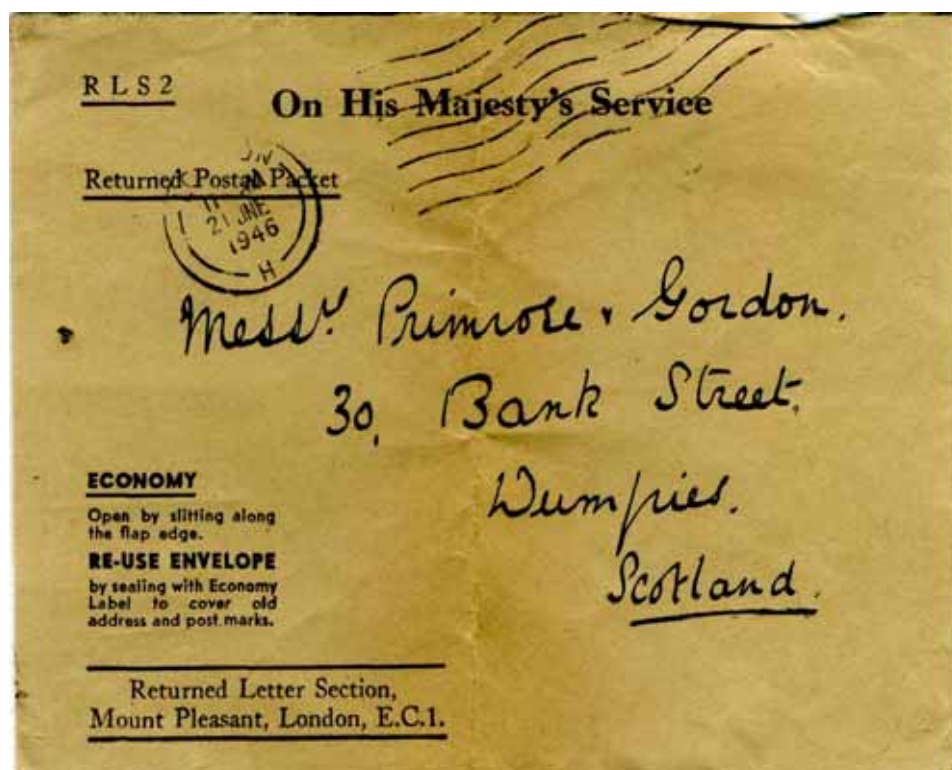 RLS2
On His Majesty's Service
Returned Postal Packet
21 JNE
1946
H
Messrs Primrose & Gordon.
30, Bank Street,
Dumfries.
Scotland.
ECONOMY
Open by slitting along
the flap edge.
RE-USE ENVELOPE
by sealing with Economy
Label to cover old
address and post marks.
Returned Letter Section,
Mount Pleasant, London, E.C.1.